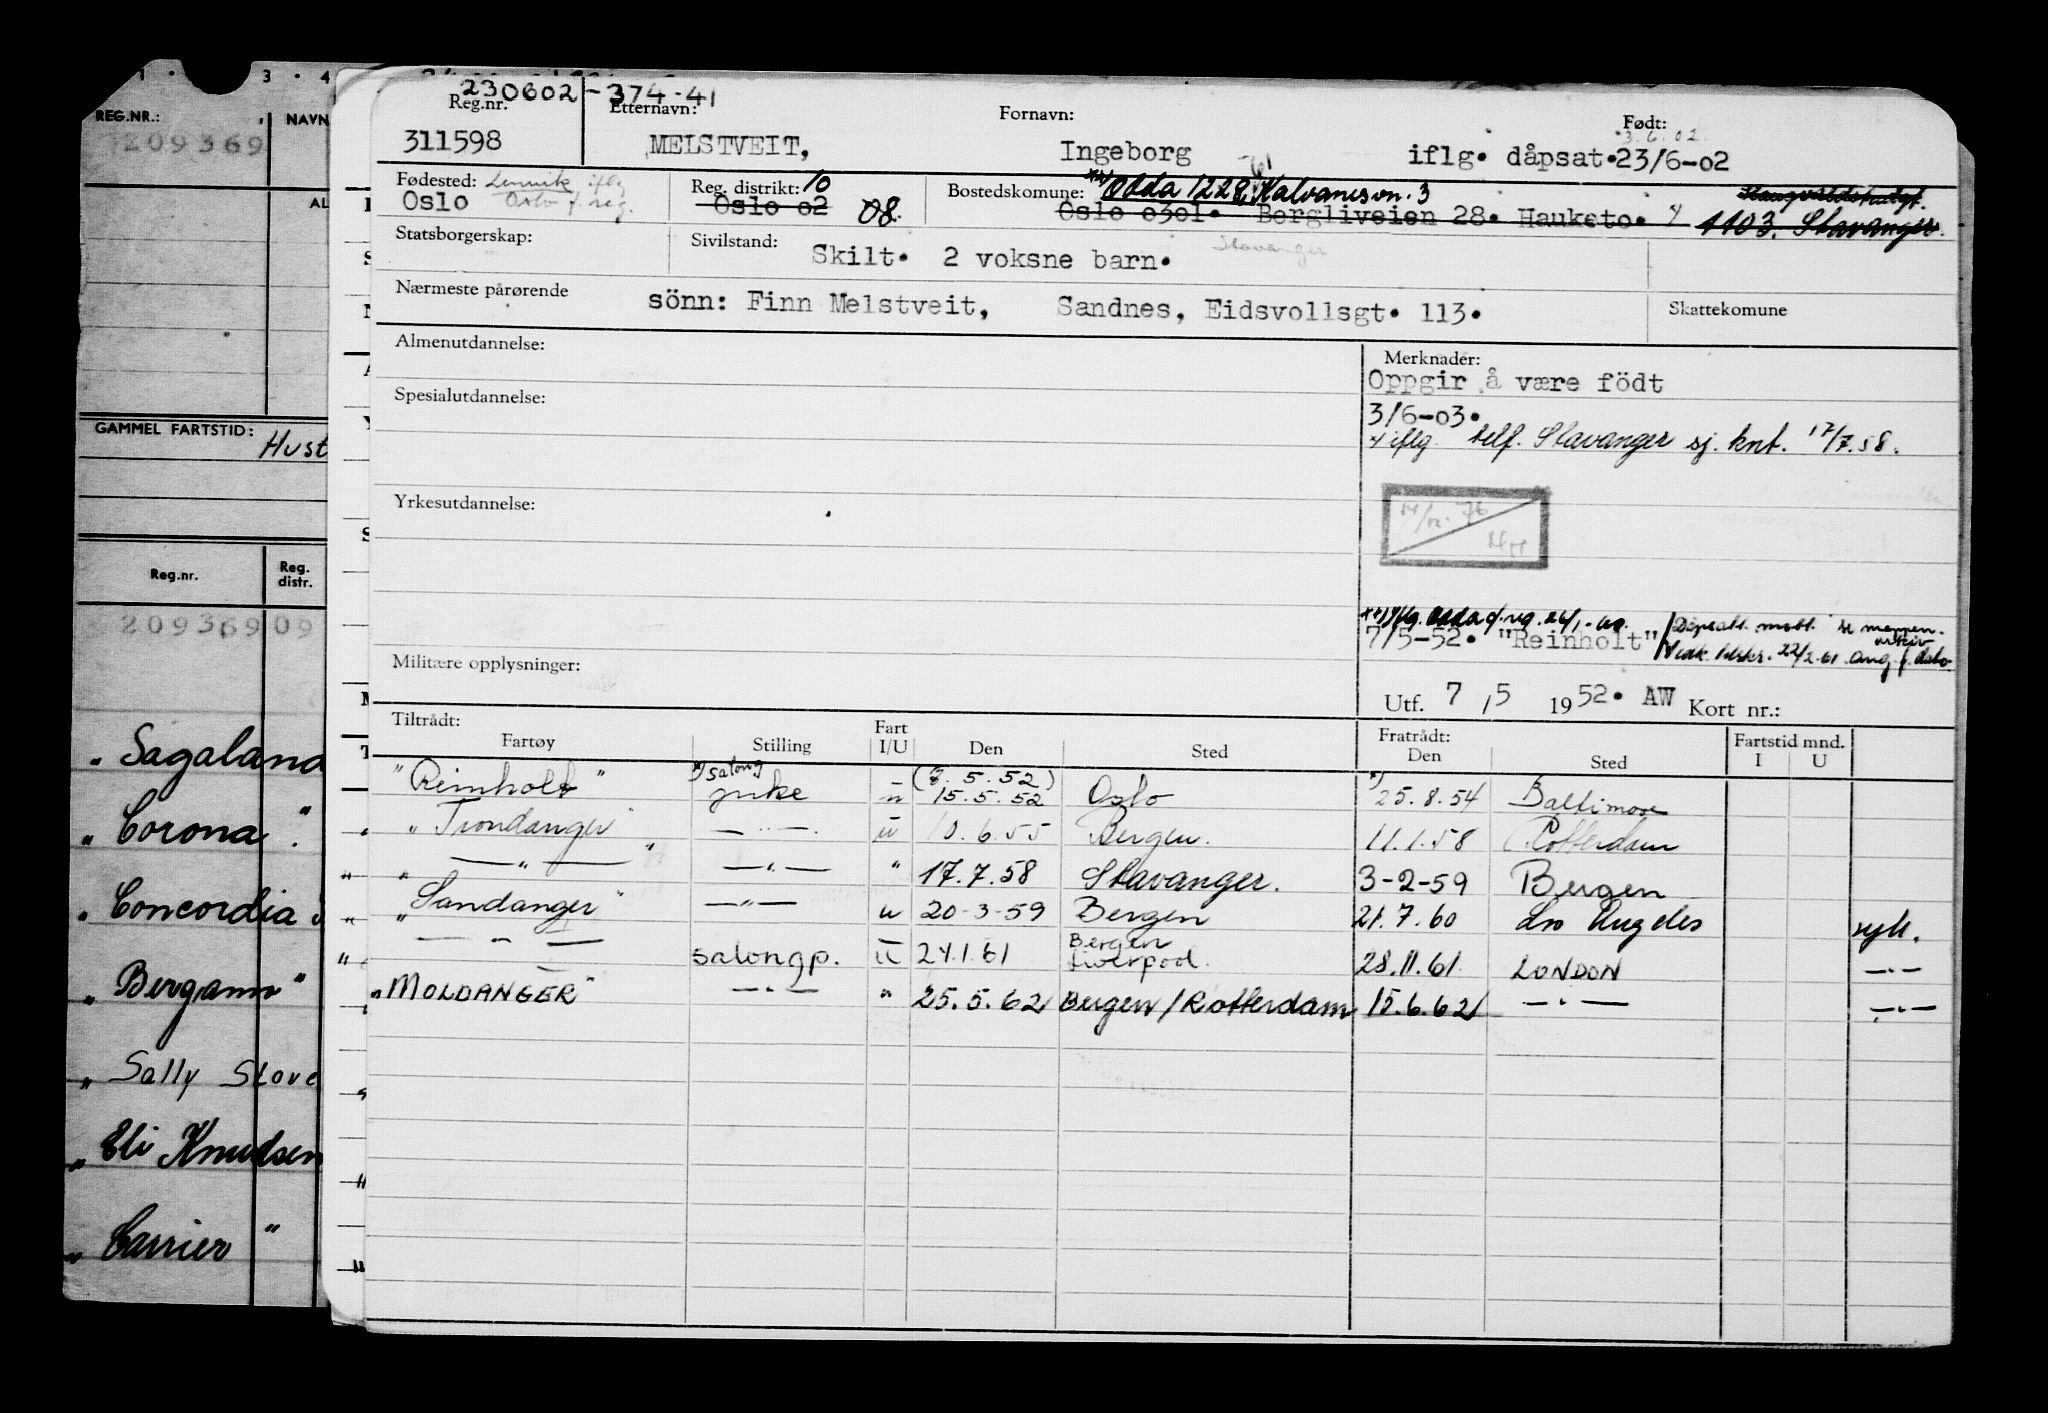 1 · 3 · 4
REG.NR.: NAVN
209369
GAMMEL FARTSTID: Hust
Reg.nr. Reg. distr.
209369 09
" Sagaland
" Corona "
" Concordia
" Bergann"
" Sally Stove
" Eli Knudsen
" Carrier "
230602-374-41
Reg.nr. Etternavn: Fornavn: Født:
3.6.02
311598 MELSTVEIT, Ingeborg iflg. dåpsat.23/6-02
Fødested: Lenvik iflg Reg. distrikt: 10 Bostedskomune: Odda 1228, Kalvanesvn. 3
Oslo Oslo f. reg. Oslo 02 08. Oslo 0301. Bergliveien 28. Hauketo. 1103. Stavanger.
Statsborgerskap: Sivilstand: Skilt. 2 voksne barn. Stavanger
Nærmeste pårørende sönn: Finn Melstveit, Sandnes, Eidsvollsgt. 113. Skattekomune
Almenutdannelse: Merknader:
Oppgir å være födt
Spesialutdannelse: 3/6-03.
x iflg telf. Stavanger sj. knt. 17/7.58.
Yrkesutdannelse:
14/12.76
HH
xx) iflg. Odda f. reg. 26/1-60.
7/5-52. "Reinholt" Dåpsatt. mott. se mappen. arkiv
22/2.61 ang. f. Oslo
Militære opplysninger:
Utf. 7/5 1952. AW Kort nr.:
Tiltrådt: Fratrådt: Fartstid mnd.
Fartøy Stilling Fart I/U Den Sted Den Sted I U
"Reinholt" salong pike u (7.5.52) 15.5.52 Oslo 25.8.54 Baltimore
"Trondanger" — " — u 10.6.55 Bergen. 11.1.58 Rotterdam
" — " — " — " — " 17.7.58 Stavanger. 3-2-59 Bergen
" "Sandanger" — " — u 20-3-59 Bergen 21.7.60 Los Angeles syk.
" — " — salongp. u 24.1.61 Bergen Liverpool. 28.11.61. LONDON — " —
"MOLDANGER" — " — " 25.5.62 Bergen/Rotterdam 15.6.62 — " — — " —